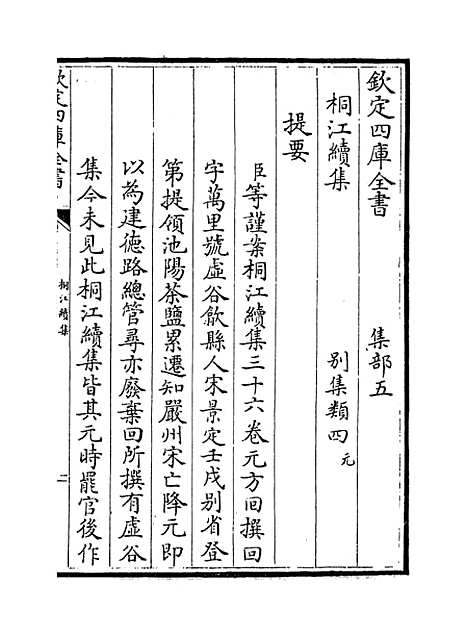 欽定四庫全書　集部五
桐江續集　别集類四元
提要
臣等謹案桐江續集三十六卷元方回撰回
字萬里號虛谷歙縣人宋景定壬戌别省登
第提領池陽茶鹽累遷知嚴州宋亡降元即
以為建德路總管尋亦廢棄回所撰有虛谷
集今未見此桐江續集皆其元時罷官後作
欽定四庫全書
桐江續集